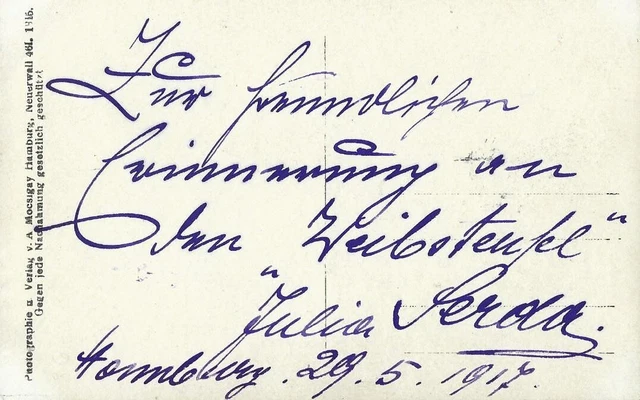 Zur freundlichen
Erinnerung an
den "Weibsteufel"
Julia Serda.
Hamburg. 29. 5. 1917.
Photographie u. Verlag v. A Mocsigay Hamburg, Neuerwall 46I. 1916.
Gegen jede Nachahmung gesetzlich geschützt